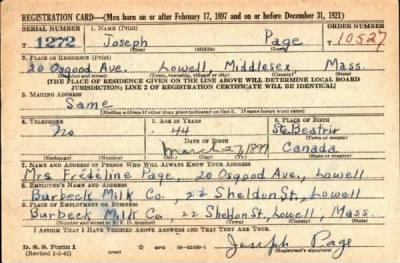 REGISTRATION CARD—(Men born on or after February 17, 1897 and on or before December 31, 1921)
SERIAL NUMBER 1. NAME (Print) ORDER NUMBER
T 1272 Joseph Page T10527
(First) (Middle) (Last)
2. PLACE OF RESIDENCE (Print)
20 Osgood Ave. Lowell Middlesex Mass.
(Number and street) (Town, township, village, or city) (County) (State)
[THE PLACE OF RESIDENCE GIVEN ON THE LINE ABOVE WILL DETERMINE LOCAL BOARD
JURISDICTION; LINE 2 OF REGISTRATION CERTIFICATE WILL BE IDENTICAL]
3. MAILING ADDRESS
Same
[Mailing address if other than place indicated on line 2. If same insert word same]
4. TELEPHONE 5. AGE IN YEARS 6. PLACE OF BIRTH
No 44 Ste. Beatrix
DATE OF BIRTH (Town or county)
March 27 1897 Canada
(Exchange) (Number) (Mo.) (Day) (Yr.) (State or country)
7. NAME AND ADDRESS OF PERSON WHO WILL ALWAYS KNOW YOUR ADDRESS
Mrs Fredeline Page, 20 Osgood Ave., Lowell
8. EMPLOYER'S NAME AND ADDRESS
Burbeck Milk Co., 22 Sheldon St., Lowell
9. PLACE OF EMPLOYMENT OR BUSINESS
Burbeck Milk Co., 22 Sheldon St., Lowell, Mass.
(Number and street or R. F. D. number) (Town) (County) (State)
I AFFIRM THAT I HAVE VERIFIED ABOVE ANSWERS AND THAT THEY ARE TRUE.
D. S. S. Form 1 (over) GPO Joseph Page
(Revised 1-1-42) (Registrant's signature)